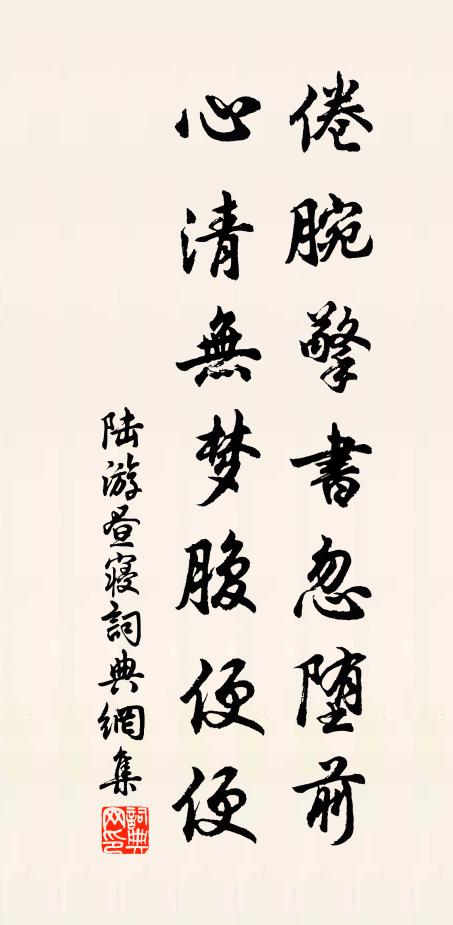 倦腕擎書忽堕前
心清無梦腹便便
陆游昼寝詞典網集
詞典网印